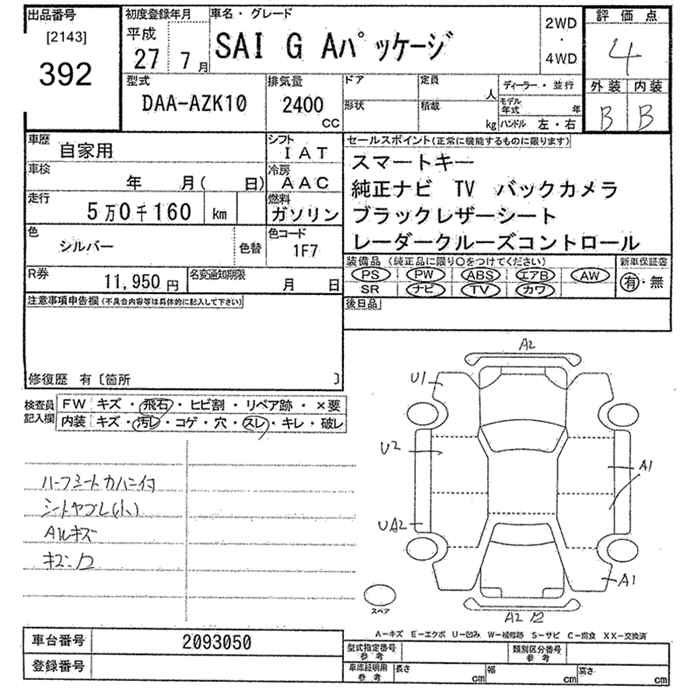 出品番号 初度登録年月 車名・グレード 2WD・4WD 評価点
[2143] 392 平成 27 7月 SAI G Aパッケージ 4
型式 排気量 ドア 定員 人 ディーラー・並行 外装 内装
DAA-AZK10 2400 cc 形状 積載 kg モデル年式 年 ハンドル 左・右 B B
車歴 自家用 シフト IAT セールスポイント(正常に機能するものに限ります)
車検 年 月( 日) 冷房 AAC スマートキー
純正ナビ TV バックカメラ
走行 5万0千160 km 燃料 ガソリン ブラックレザーシート
色 シルバー 色替 色コード 1F7 レーダークルーズコントロール
R券 11,950円 名変通知期限 月 日
装備品(純正品に限り○をつけてください) 新車保証書
PS PW ABS エアB AW 有・無
SR ナビ TV カワ
注意事項申告欄(不具合内容等は具体的に記入して下さい) 後日品
修復歴 有〔箇所 〕
検査員記入欄 FW キズ・飛石・ヒビ割・リペア跡・×要
内装 キズ・汚レ・コゲ・穴・スレ・キレ・破レ
ハーフシートカバー付
シートヤブレ(小)
Aルキズ
A2
U1
U2
A1
UA2
A1
A2
スペア
A-キズ E-エクボ U-凹み W-補修跡 S-サビ C-腐食 XX-交換済
車台番号 2093050 型式指定番号 参考 類別区分番号 参考
登録番号 車庫証明用 参考 長さ cm 幅 cm 高さ cm